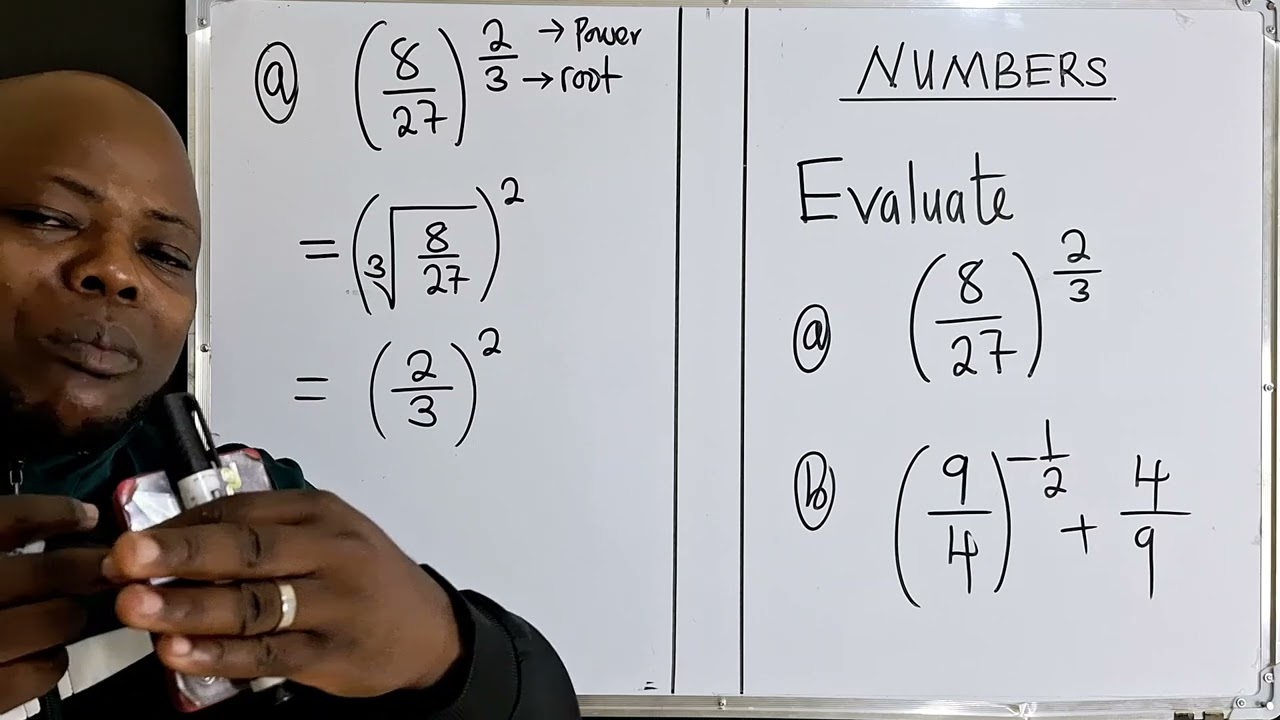 ⓐ (8/27)^(2/3) → Power → root
= (∛(8/27))²
= (2/3)²
NUMBERS
Evaluate
ⓐ (8/27)^(2/3)
ⓑ (9/4)^(-1/2) + 4/9